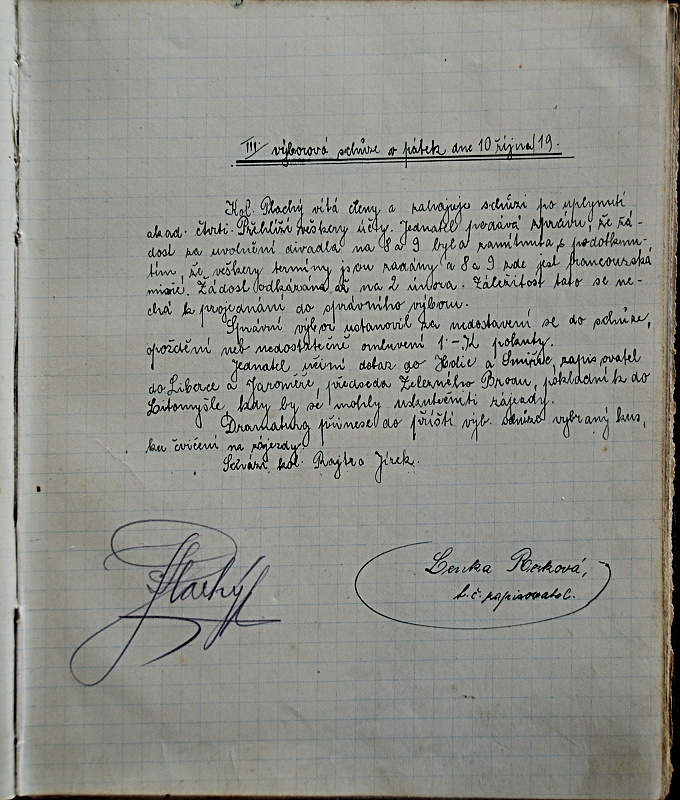 III. výborová schůze v pátek dne 10 října/19.
Kol. Plachý vítá členy a zahajuje schůzi po uplynutí
akad. čtvrti. Přehlíží veškery účty. Jednatel podává zprávu, že žá-
dost za uvolnění divadla na 8 a 9 byla zamítnuta s podotknu-
tím, že veškery termíny jsou zadány a 8 a 9 zde jest francouzská
misie. Žádost odkázána až na 2 února. Záležitost tato se ne-
chá k projednání do správního výboru.
Správní výbor ustanovil za nedostavení se do schůze,
opoždění neb nedostatečné omluvení 1.-K pokuty.
Jednatel učiní dotaz do Hořic a Smiřic, zapisovatel
do Liberce a Jaroměře, předseda Železného Brodu, pokladník do
Litomyšle kdy by se mohly uskutečniti zájezdy.
Dramaturg přinese do příští výb. schůze vybraný kus,
ku cvičení na zájezdy.
Schází kol. Rajtr a Jirek.
Plachý
Lenka Reková,
t.č. zapisovatel.